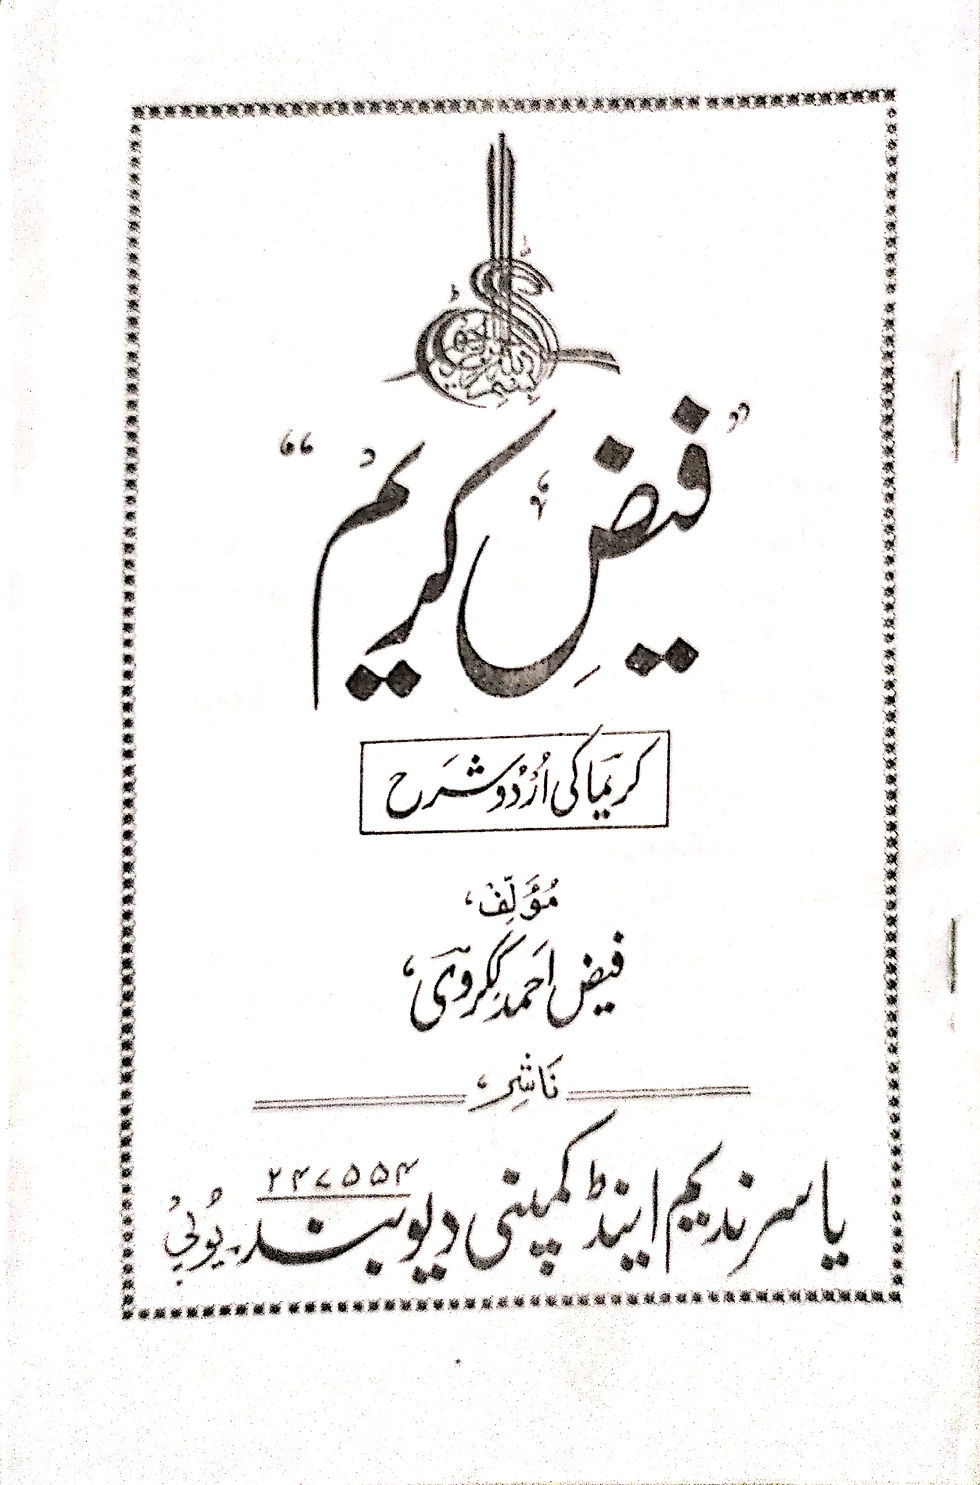 بسم الله الرحمن الرحیم
”فیضِ کریم“
کریما کی اُردو شرح
مُؤلِّف،
فیض احمد ککروی،
نَاشِر،
۲۴۷۵۵۴
یاسر ندیم اینڈ کمپنی دیوبند۔ یُوپی